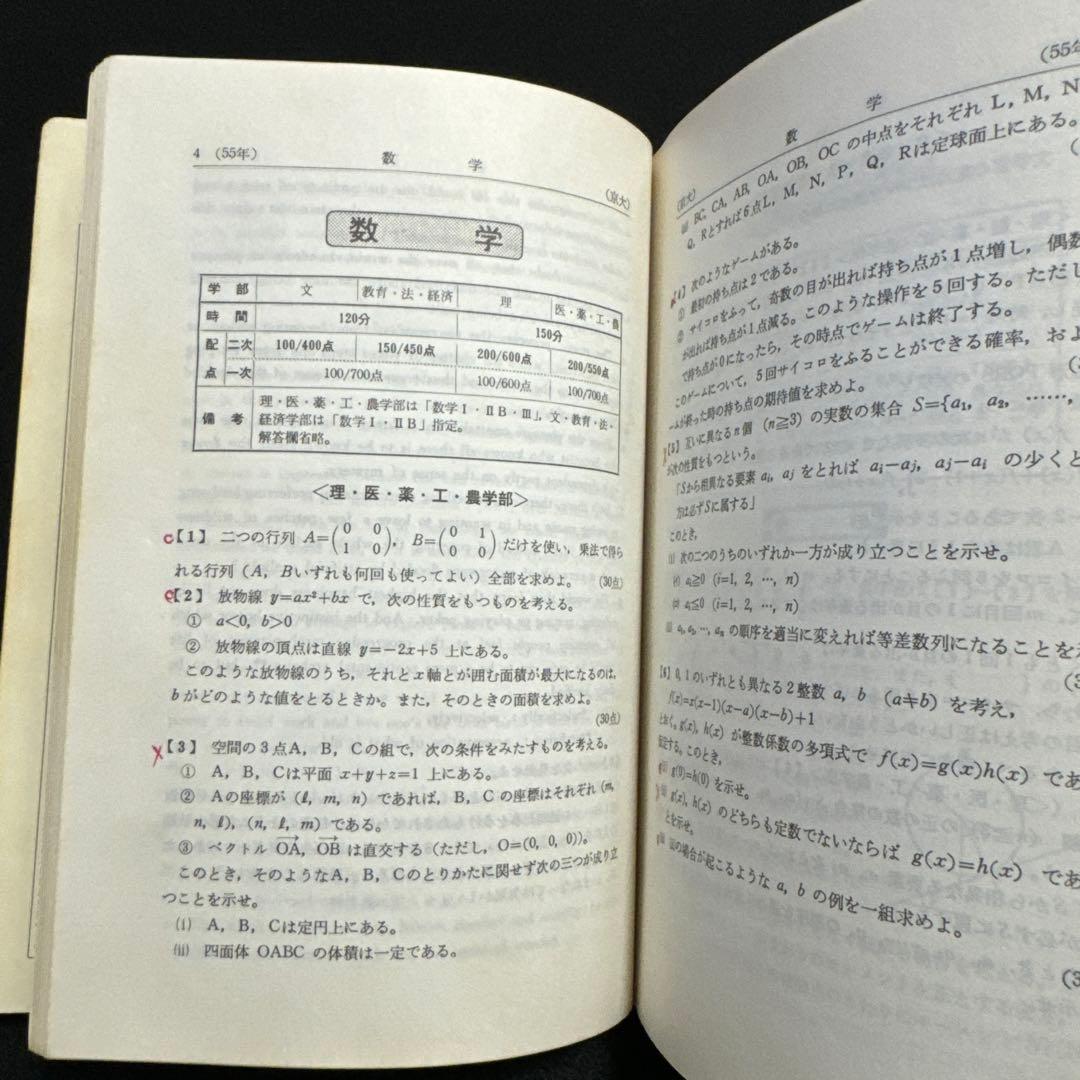 4 (55年) 数 学 (京大)
数 学
学部 文 教育・法・経済 理 医・薬・工・農
時間 120分 150分
配点 二次 100/400点 150/450点 200/600点 200/550点
一次 100/700点 100/600点 100/700点
備考 理・医・薬・工・農学部は「数学Ⅰ・ⅡB・Ⅲ」,文・教育・法・
経済学部は「数学Ⅰ・ⅡB」指定。
解答欄省略。
<理・医・薬・工・農学部>
C【1】 二つの行列 A=(0 0 1 0), B=(0 1 0 0) だけを使い,乗法で得ら
れる行列(A, Bいずれも何回も使ってよい)全部を求めよ。 (30点)
C【2】 放物線 y=ax²+bx で,次の性質をもつものを考える。
① a<0, b>0
② 放物線の頂点は直線 y=-2x+5 上にある。
このような放物線のうち,それとx軸とが囲む面積が最大になるのは,
bがどのような値をとるときか。また,そのときの面積を求めよ。
(30点)
X【3】 空間の3点A, B, Cの組で,次の条件をみたすものを考える。
① A, B, Cは平面 x+y+z=1 上にある。
② Aの座標が (ℓ, m, n) であれば,B, Cの座標はそれぞれ (m,
n, ℓ), (n, ℓ, m) である。
③ ベクトル OA, OB は直交する(ただし,O=(0, 0, 0))。
このとき,そのようなA, B, Cのとりかたに関せず次の三つが成り立
つことを示せ。
(i) A, B, Cは定円上にある。
(ii) 四面体 OABC の体積は一定である。
(京大) 数 学 (55年
BC, CA, AB, OA, OB, OC の中点をそれぞれ L, M, N
Q, Rとすれば6点L, M, N, P, Q, Rは定球面上にある。
【4】 次のようなゲームがある。
① 最初の持ち点は2である。
② サイコロをふって,奇数の目が出れば持ち点が1点増し,偶数
が出れば持ち点が1点減る。このような操作を5回する。ただし
で持ち点が0になったら,その時点でゲームは終了する。
このゲームについて,5回サイコロをふることができる確率,およ
ームが終った時の持ち点の期待値を求めよ。
【5】 互いに異なるn個 (n≧3) の実数の集合 S={a₁, a₂, ……,
が次の性質をもつという。
「Sから相異なる要素 aᵢ, aⱼ をとれば aᵢ-aⱼ, aⱼ-aᵢ の少くと
方は必ずSに属する」
このとき,
(i) 次の二つのうちのいずれか一方が成り立つことを示せ。
(イ) aᵢ≧0 (i=1, 2, …, n)
(ロ) aᵢ≦0 (i=1, 2, …, n)
a₁, a₂, …, aₙ の順序を適当に変えれば等差数列になることを
【6】 0, 1のいずれとも異なる2整数 a, b (a≠b) を考え,
f(x)=x(x-1)(x-a)(x-b)+1
とおく。g(x), h(x) が整数係数の多項式で f(x)=g(x)h(x) であ
定する。このとき,
g(0)=h(0) を示せ。
g(x), h(x) のどちらも定数でないならば g(x)=h(x) であ
とを示せ。
の場合が起こるような a, b の例を一組求めよ。